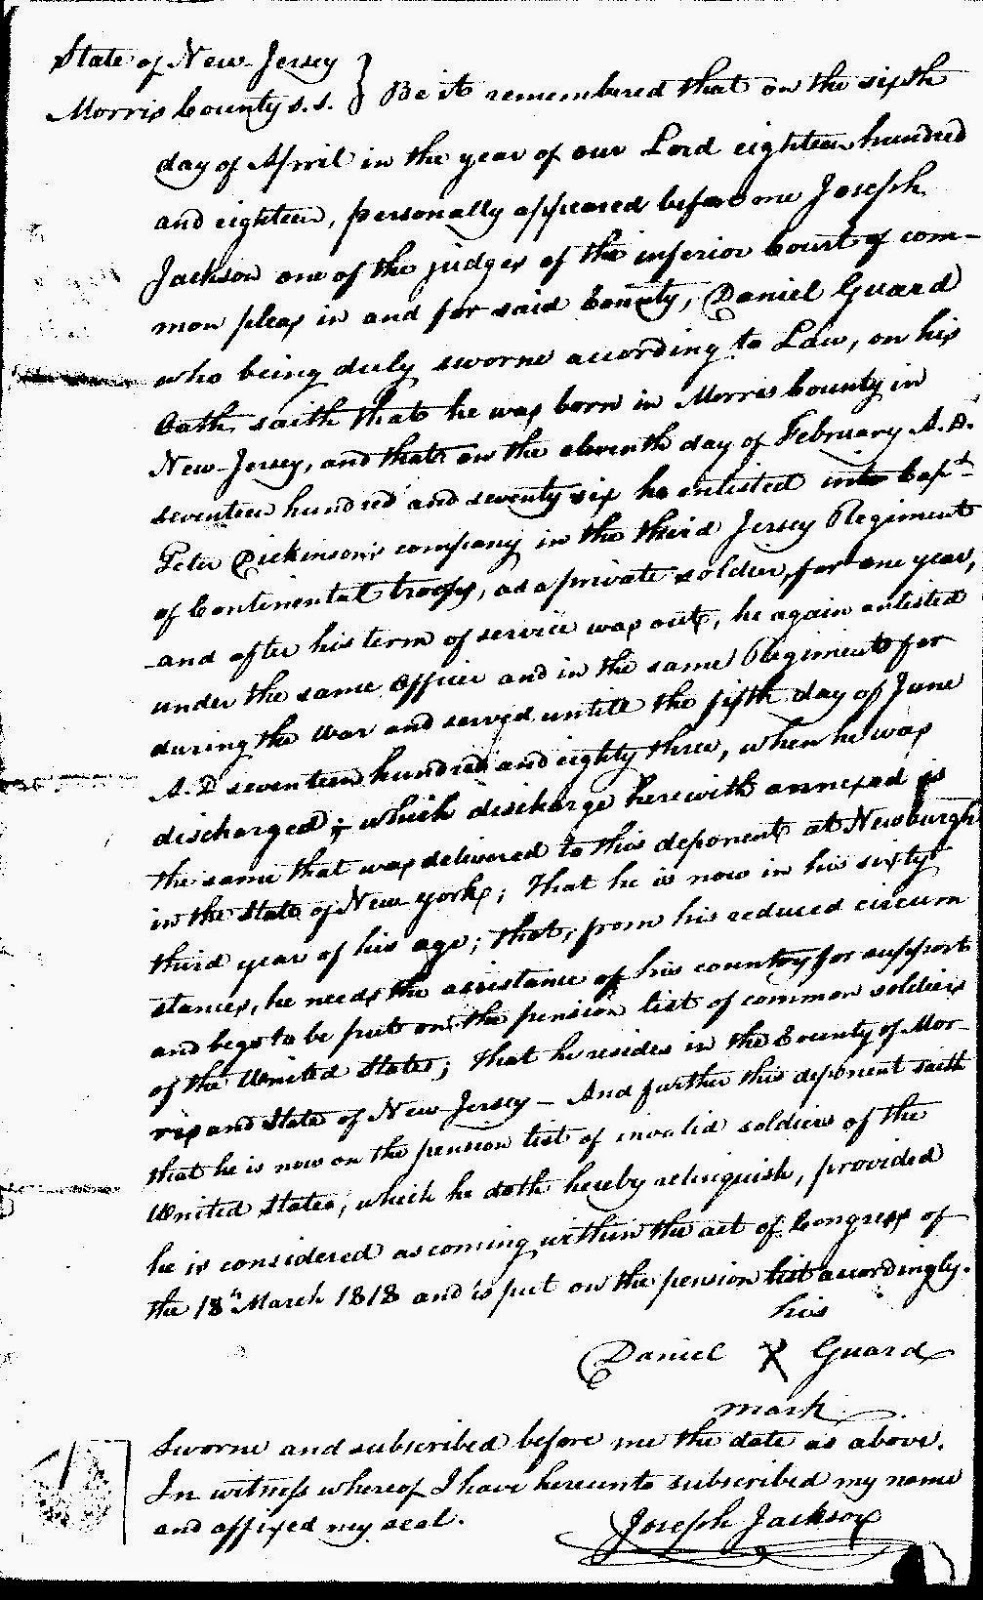 State of New-Jersey
Morris County s.s. } Be it remembered that on the sixth
day of April in the year of our Lord eighteen hundred
and eighteen, personally appeared before me Joseph
Jackson one of the judges of the inferior Court of com-
mon pleas in and for said County, Daniel Guard
who being duly sworne according to Law, on his
Oath, saith that he was born in Morris County in
New-Jersey, and that on the eleventh day of February A.D.
seventeen hundred and seventy six he enlisted into Capt
Peter Dickinson's company in the third Jersey Regiment
of Continental troops, as a private soldier, for one year,
and after his term of service was out, he again enlisted
under the same officer and in the same Regiment for
during the War and served untill the fifth day of June
A.D seventeen hundred and eighty three, when he was
discharged; which discharge herewith annexed is
the same that was delivered to this deponent at Newburgh
in the State of New-york; That he is now in his sixty
third year of his age; that, from his reduced circum
stances, he needs the assistance of his country for support
and begs to be put on the pension list of common soldiers
of the United States; that he resides in the County of Mor-
ris and State of New-Jersey - And further this deponent saith
that he is now on the pension list of invalid soldiers of the
United States, which he doth hereby relinquish, provided
he is considered as coming within the act of Congress of
the 18th March 1818 and is put on the pension list accordingly.
his
Daniel X Guard
mark
Sworne and subscribed before me the date as above.
In witness whereof I have hereunto subscribed my name
and affixed my seal.
Joseph Jackson